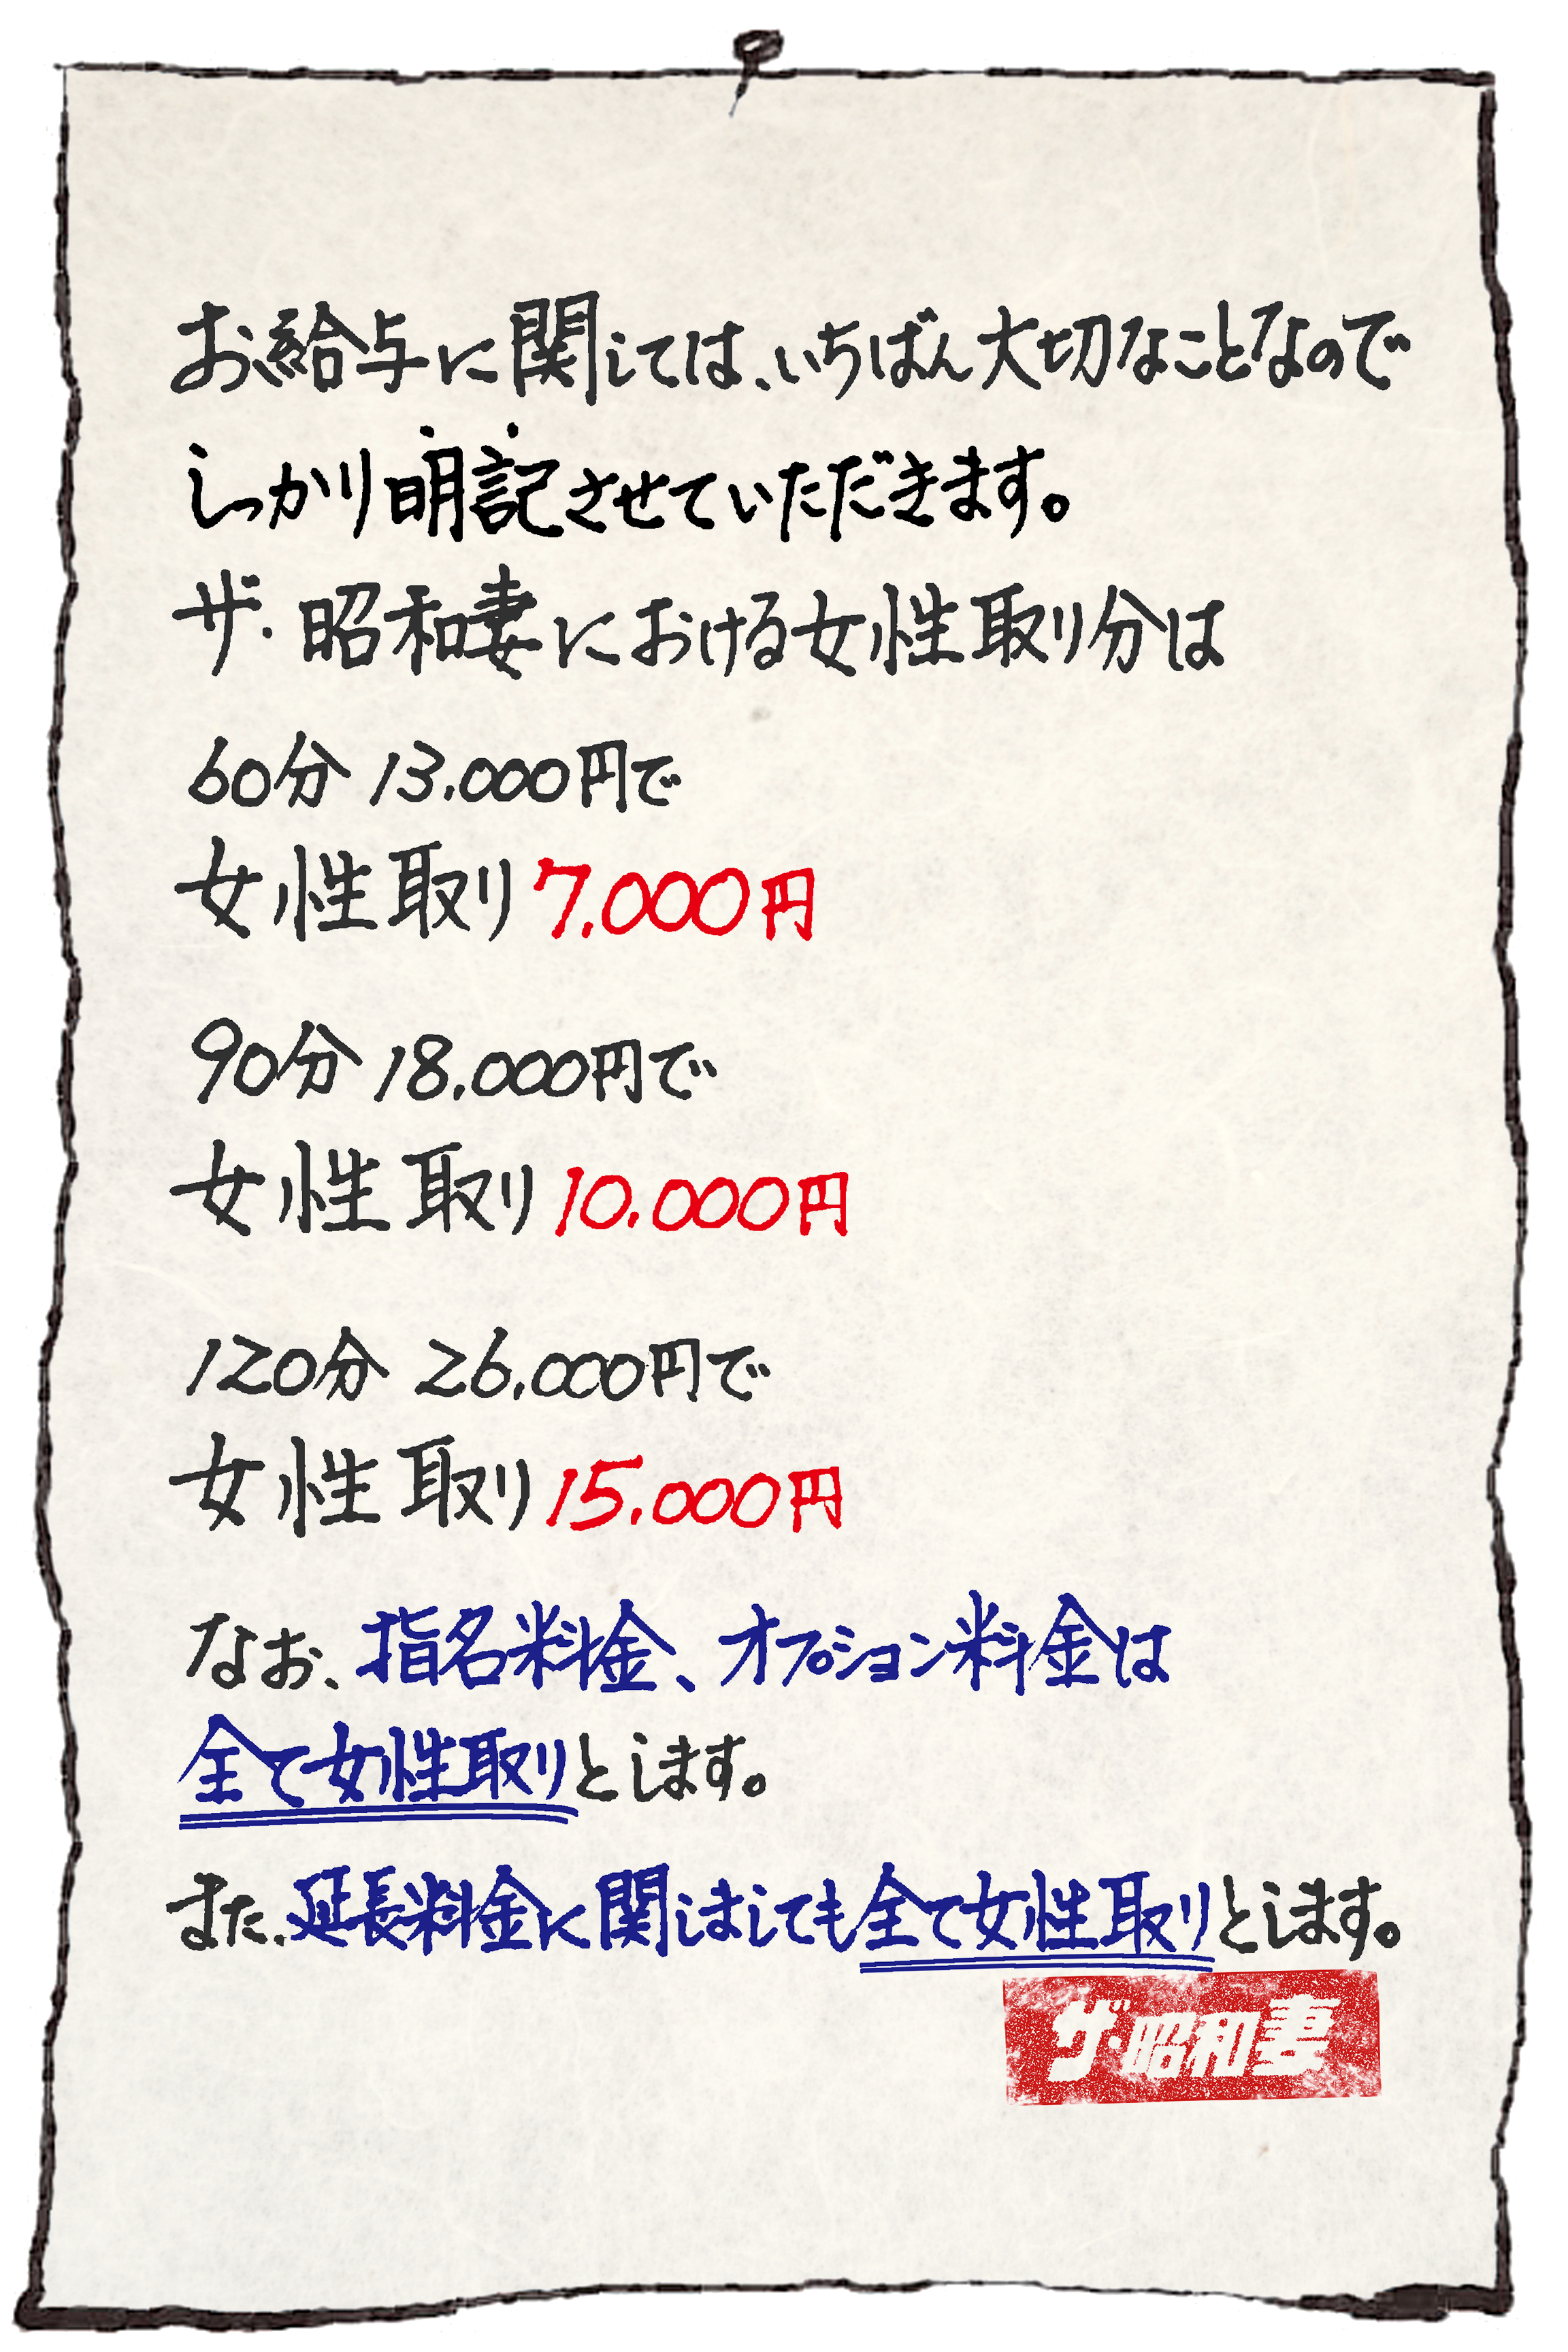 お給与に関しては、いちばん大切なことなので
しっかり明記させていただきます。
ザ・昭和妻における女性取り分は
60分 13.000円で
女性取り7.000円
90分 18.000円で
女性取り10.000円
120分 26.000円で
女性取り15.000円
なお、指名料金、オプション料金は
全て女性取りとします。
また、延長料金に関しましても全て女性取りとします。
ザ・昭和妻